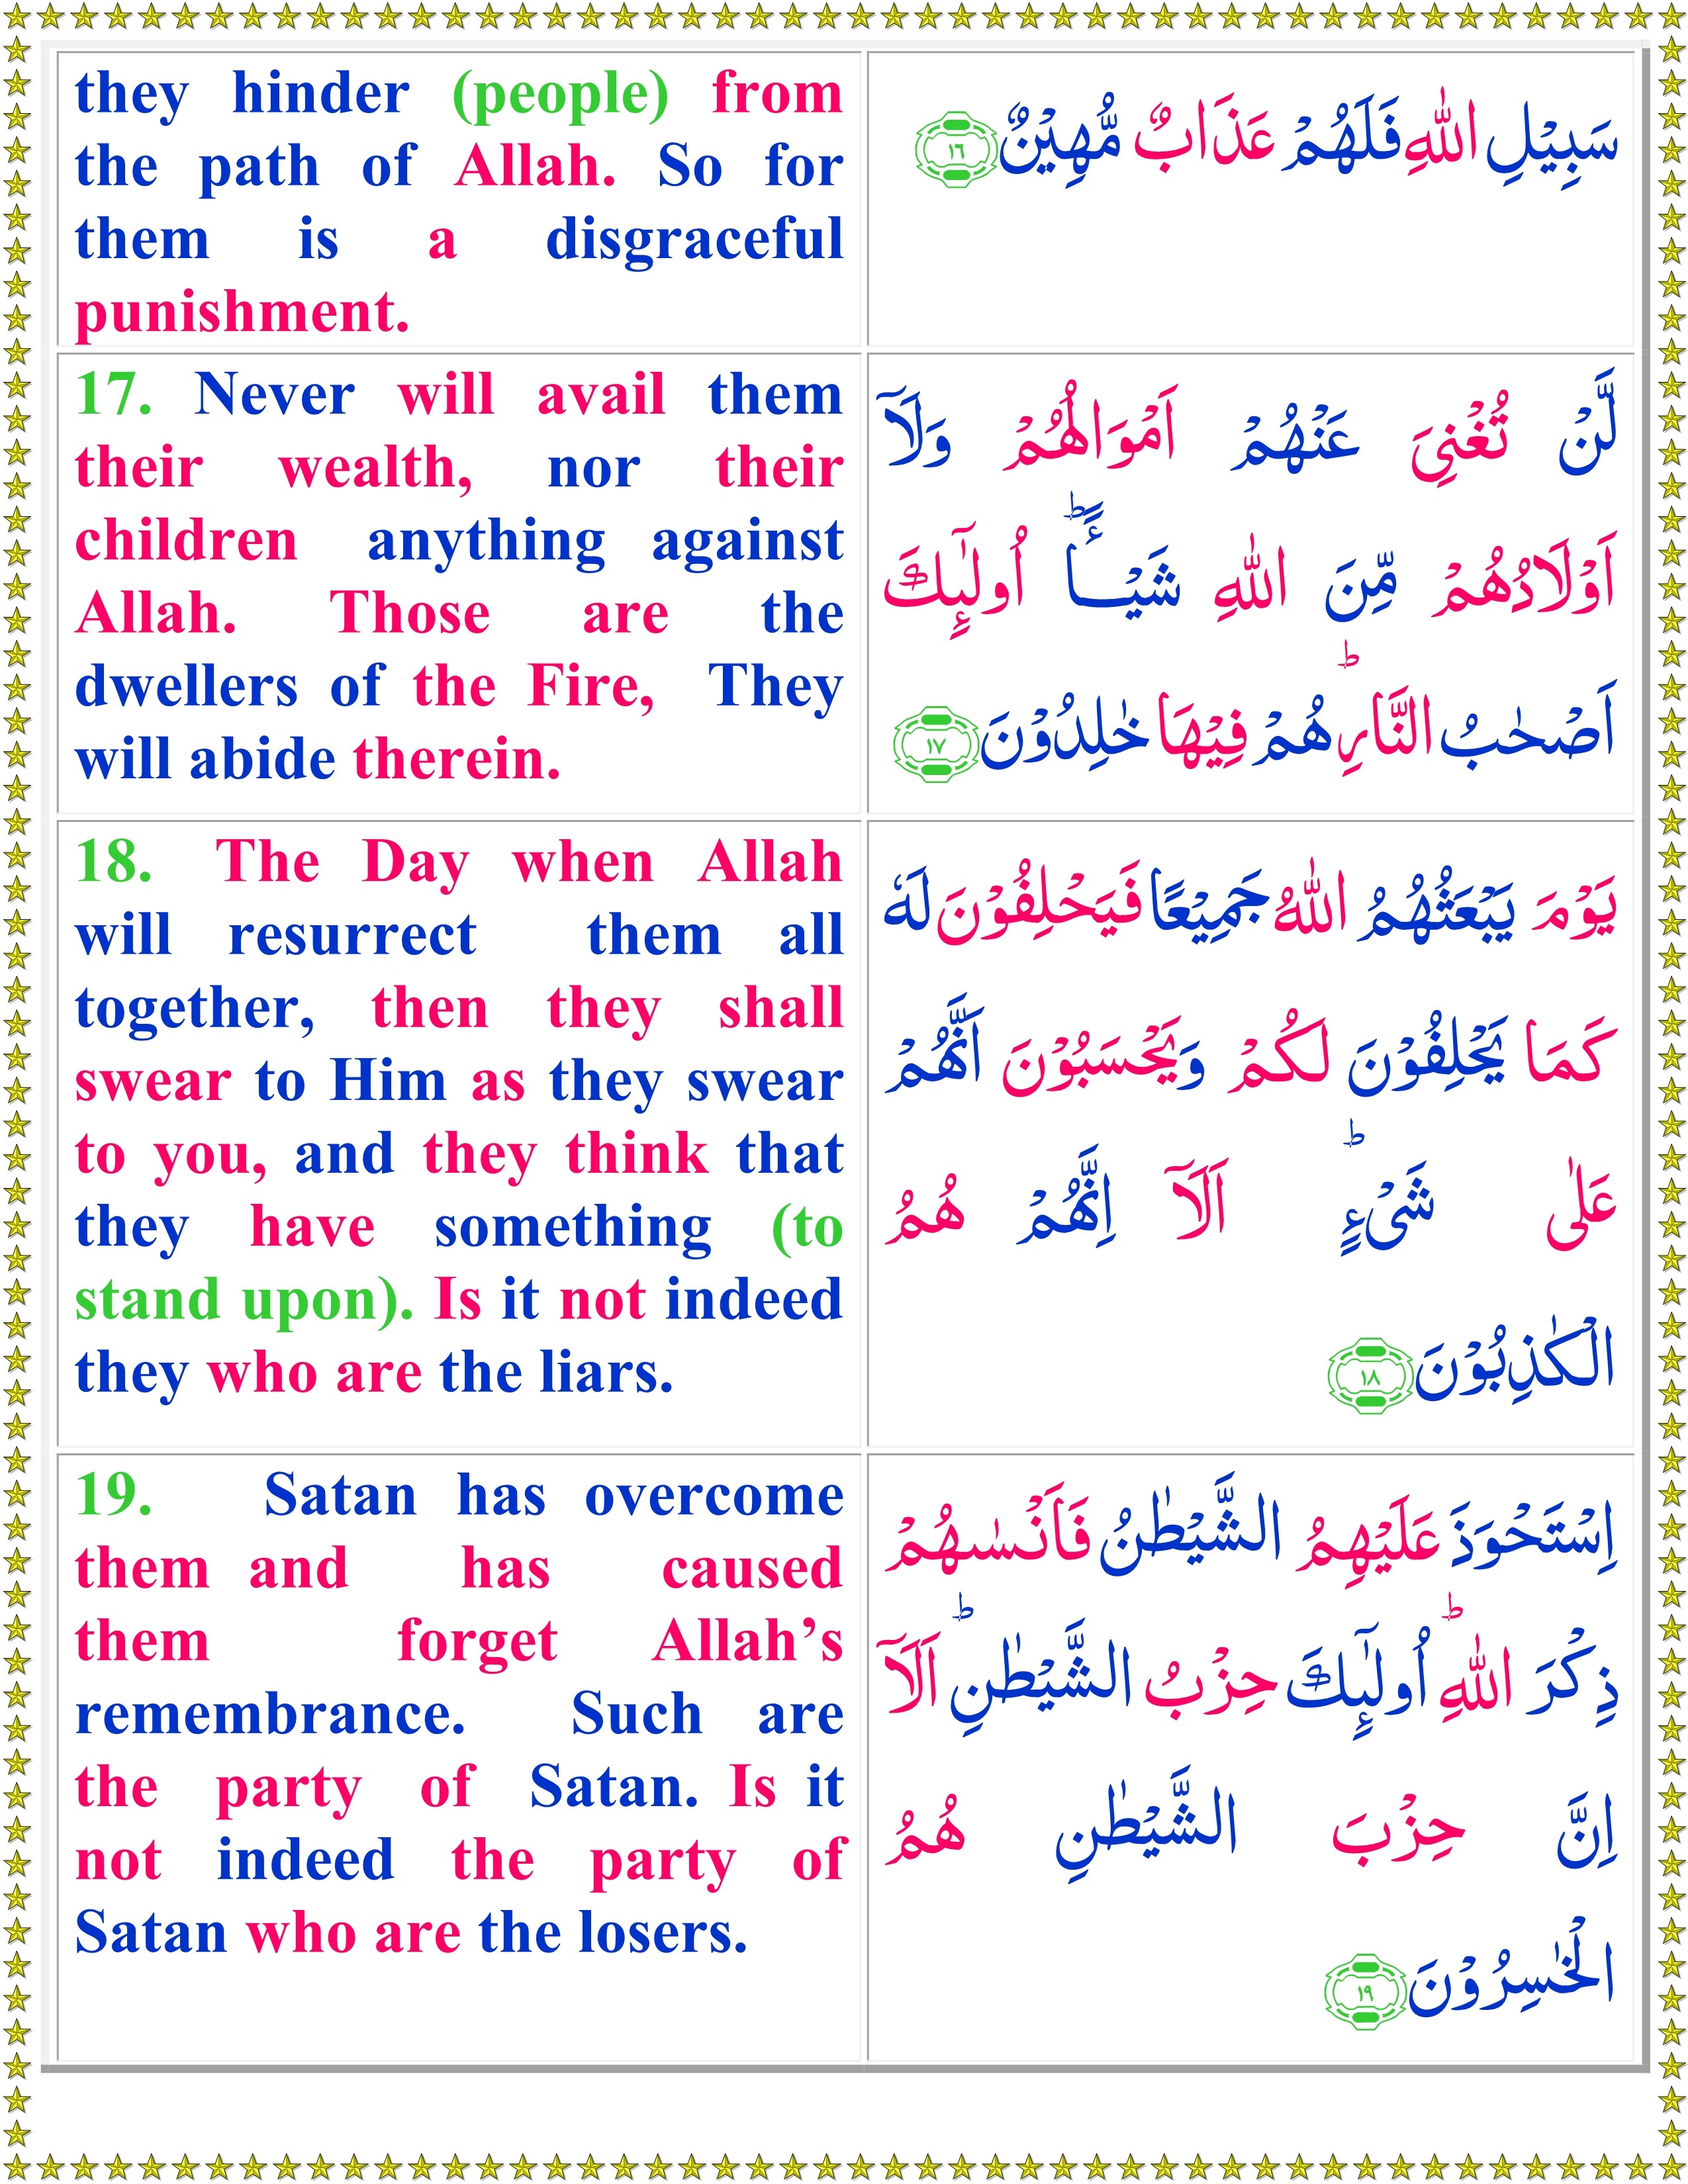 they hinder (people) from
the path of Allah. So for
them is a disgraceful
punishment.
سَبِيْلِ اللّٰهِ فَلَهُمْ عَذَابٌ مُّهِيْنٌ ١٦
17. Never will avail them
their wealth, nor their
children anything against
Allah. Those are the
dwellers of the Fire, They
will abide therein.
لَّنْ تُغْنِىَ عَنْهُمْ اَمْوَالُهُمْ وَلَاۤ
اَوْلَادُهُمْ مِّنَ اللّٰهِ شَيْــًٔاؕ اُولٰٓٮِٕكَ
اَصْحٰبُ النَّارِؕ هُمْ فِيْهَا خٰلِدُوْنَ ١٧
18. The Day when Allah
will resurrect them all
together, then they shall
swear to Him as they swear
to you, and they think that
they have something (to
stand upon). Is it not indeed
they who are the liars.
يَوْمَ يَبْعَثُهُمُ اللّٰهُ جَمِيْعًا فَيَحْلِفُوْنَ لَهٗ
كَمَا يَحْلِفُوْنَ لَكُمْ وَيَحْسَبُوْنَ اَنَّهُمْ
عَلٰى شَىْءٍؕ اَلَاۤ اِنَّهُمْ هُمُ
الْكٰذِبُوْنَ ١٨
19. Satan has overcome
them and has caused
them forget Allah’s
remembrance. Such are
the party of Satan. Is it
not indeed the party of
Satan who are the losers.
اِسْتَحْوَذَ عَلَيْهِمُ الشَّيْطٰنُ فَاَنْسٰٮهُمْ
ذِكْرَ اللّٰهِؕ اُولٰٓٮِٕكَ حِزْبُ الشَّيْطٰنِؕ اَلَاۤ
اِنَّ حِزْبَ الشَّيْطٰنِ هُمُ
الْخٰسِرُوْنَ ١٩